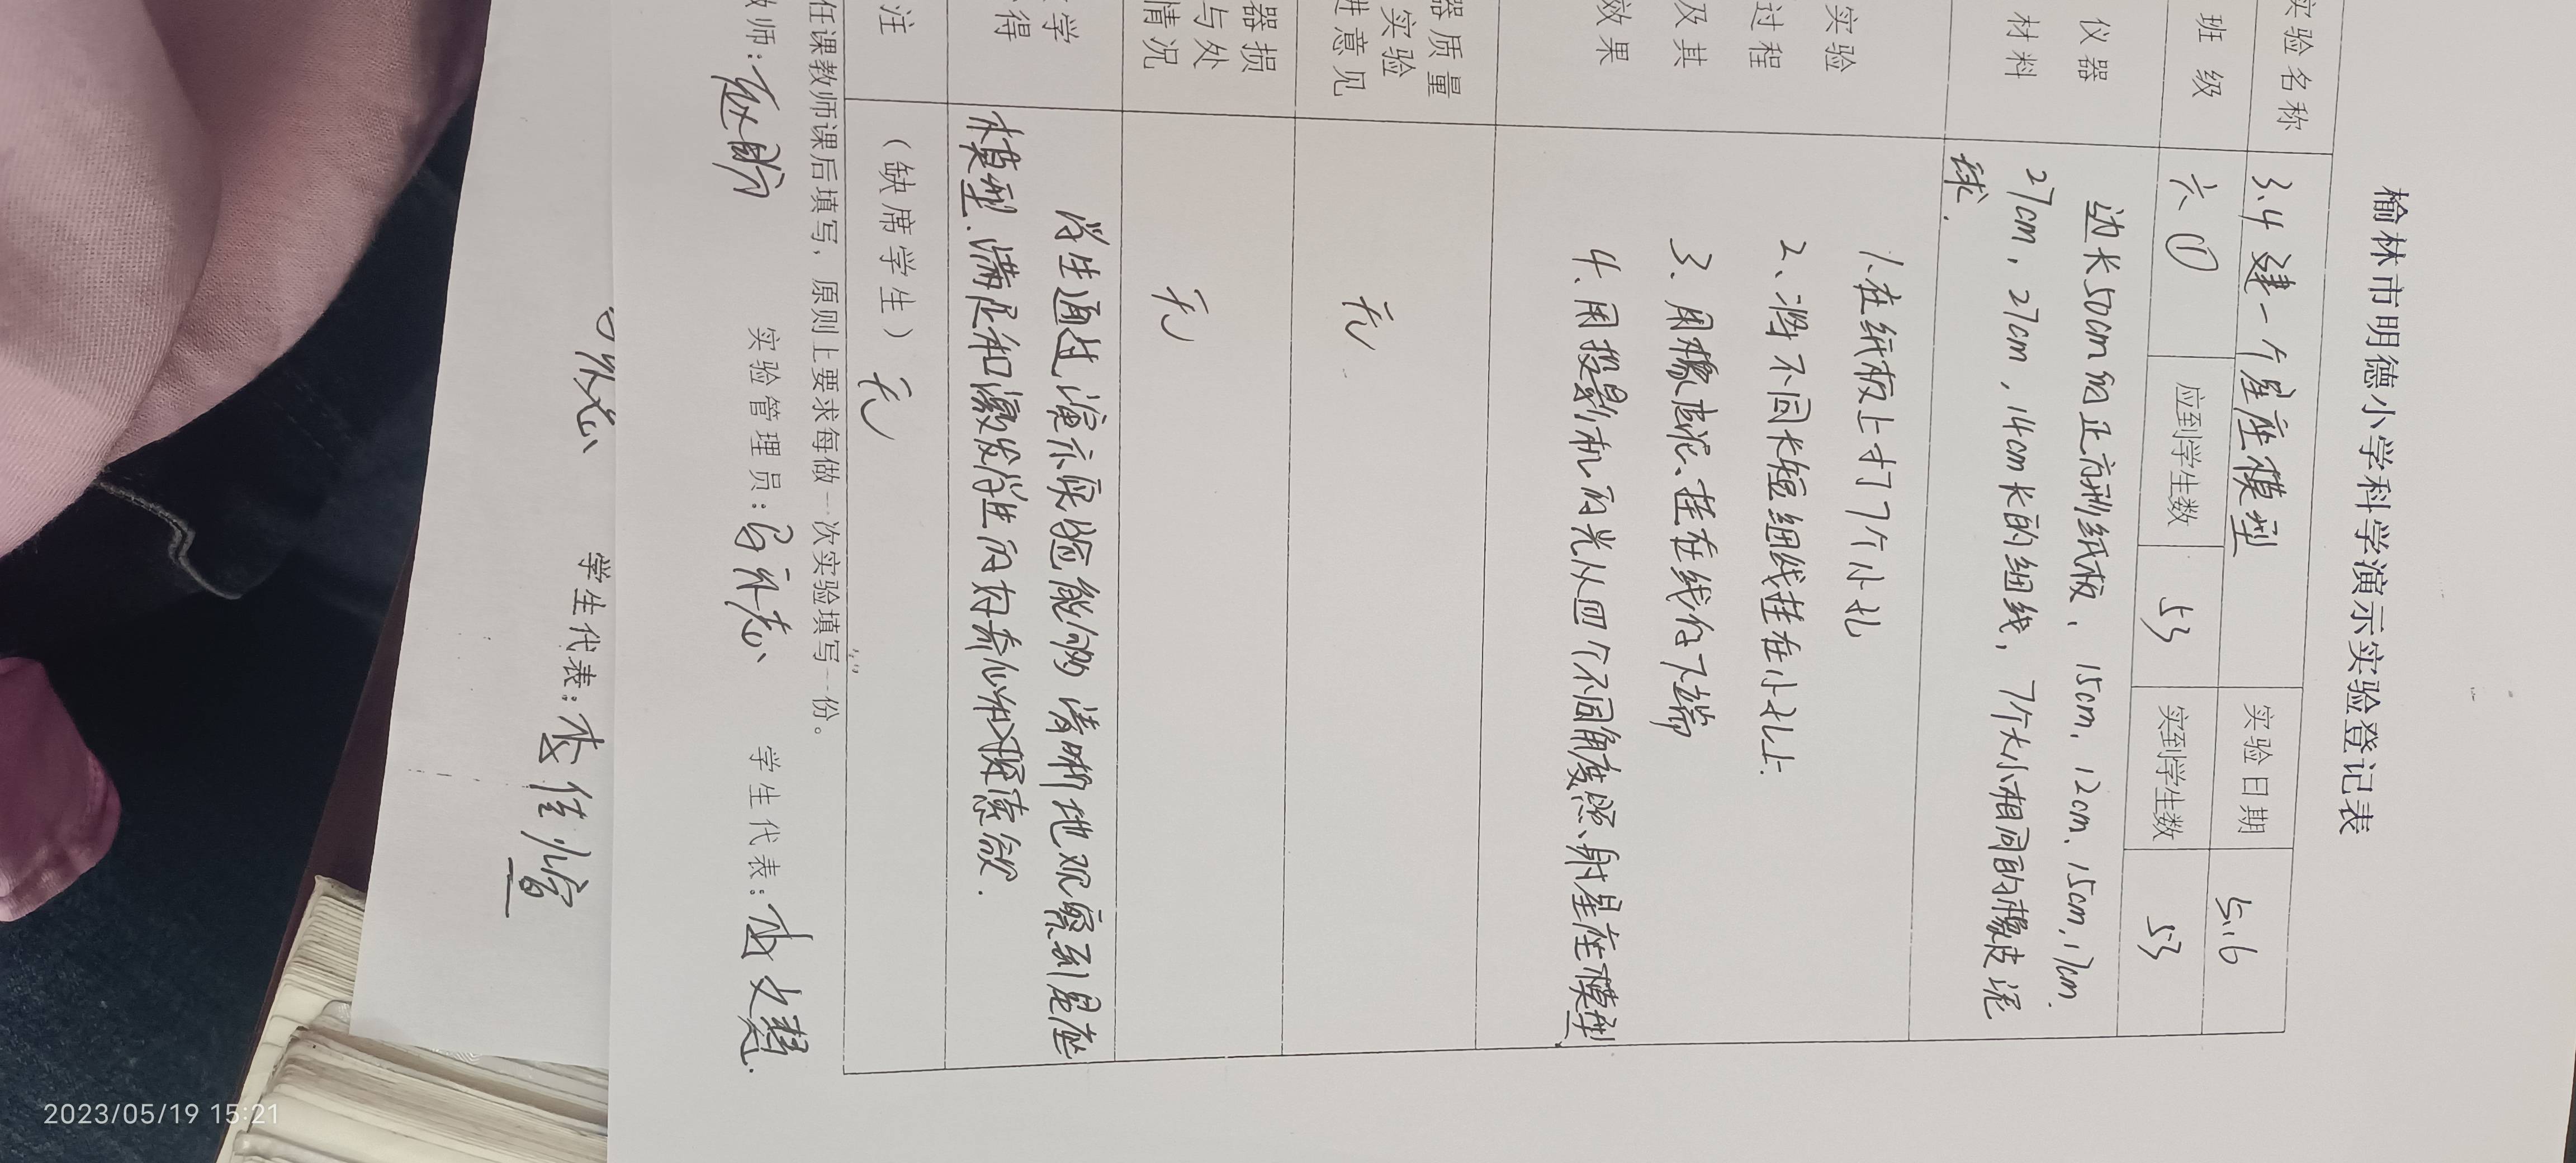 榆林市明德小学科学演示实验登记表
实验名称 3.4 建一个星座模型 实验日期 5.16
班 级 六① 应到学生数 53 实到学生数 53
仪器 边长50cm的正方形纸板、15cm、12cm、15cm、17cm.
材料 27cm,27cm,14cm长的细线,7个大小相同的橡皮泥
球.
实验 1.在纸板上打7个小孔
过程 2、将不同长短细线挂在小孔上.
及其 3、用橡皮泥、挂在线的下端
效果 4、用投影机的光从四个不同角度照射星座模型
器质量
实验 无
进意见
器损
与处 无
情况
学 学生通过演示实验能够清晰地观察到星座
得 模型.满足和激发学生的好奇心和探索欲.
注 (缺席学生)无
任课教师课后填写,原则上要求每做一次实验填写一份。
教师: 实验管理员: 学生代表:李文慧.
学生代表:李佳
2023/05/19 15:21